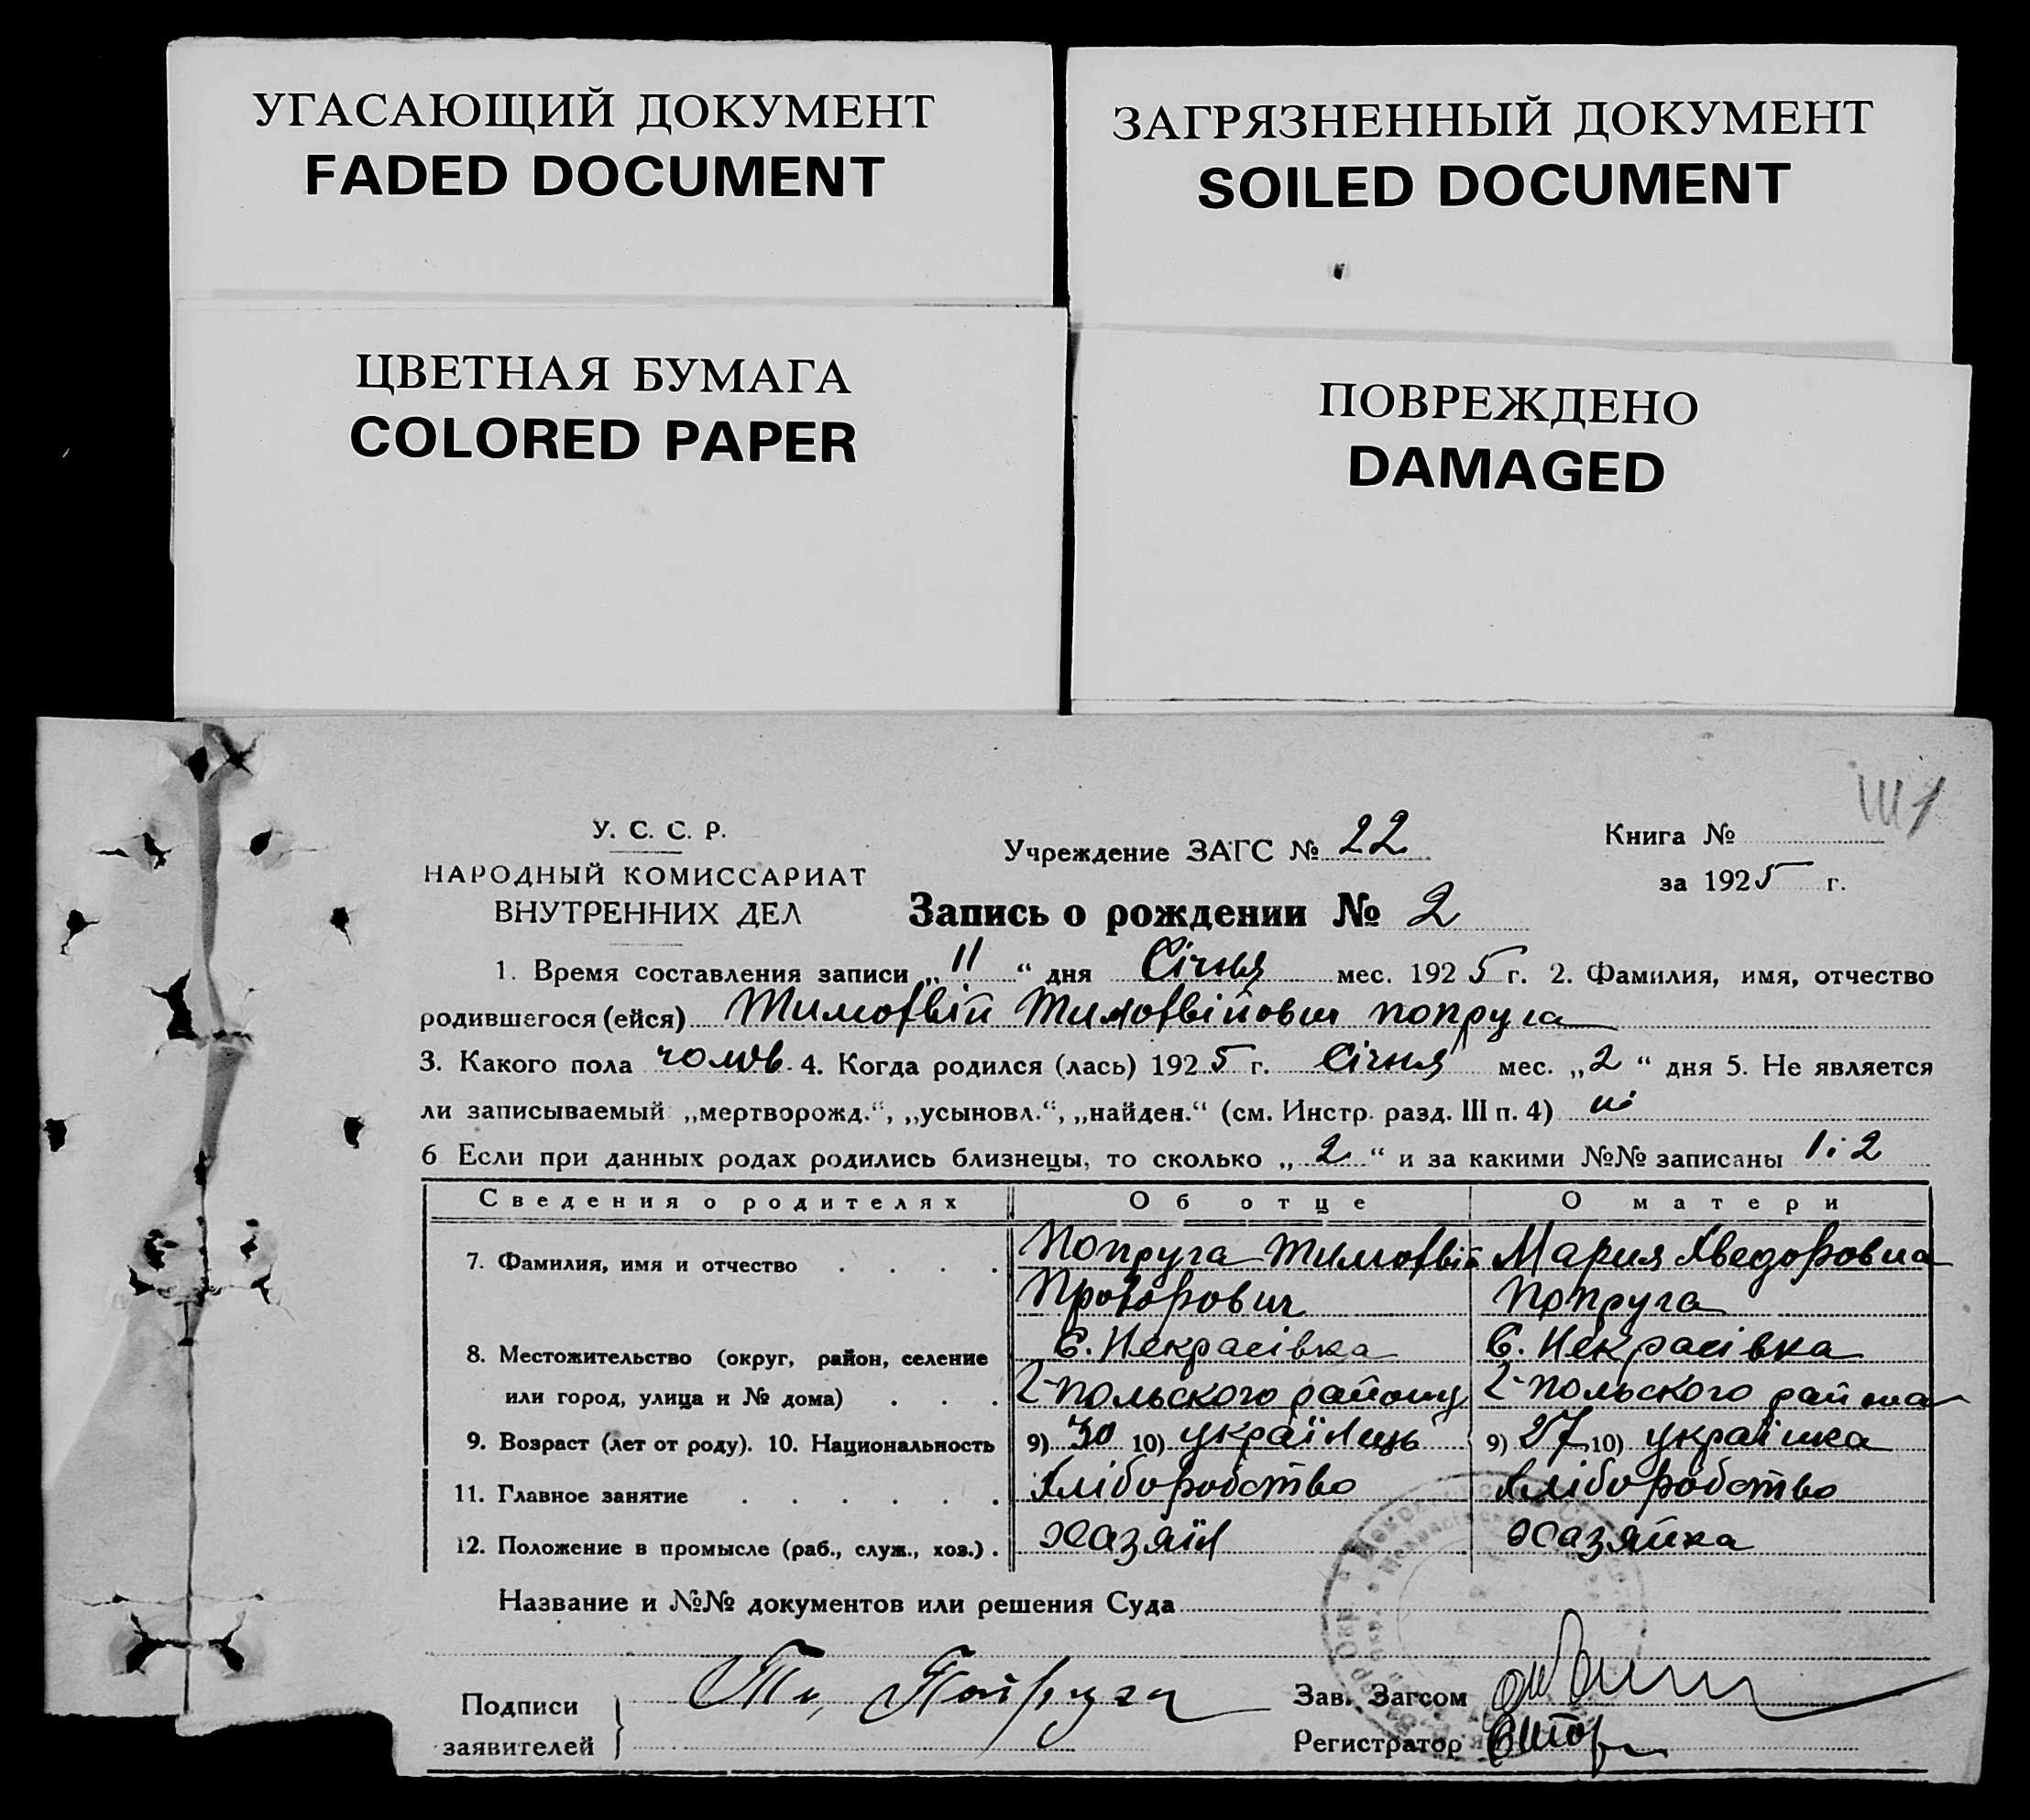 УГАСАЮЩИЙ ДОКУМЕНТ
FADED DOCUMENT
ЗАГРЯЗНЕННЫЙ ДОКУМЕНТ
SOILED DOCUMENT
ЦВЕТНАЯ БУМАГА
COLORED PAPER
ПОВРЕЖДЕНО
DAMAGED
У. С. С. Р.
НАРОДНЫЙ КОМИССАРИАТ
ВНУТРЕННИХ ДЕЛ
Учреждение ЗАГС № 22
Книга №
за 1925 г.
Запись о рождении № 2
1. Время составления записи „11“ дня Січня мес. 1925 г. 2. Фамилия, имя, отчество
родившегося (ейся) Тимофвій Тимофвійович попруга
3. Какого пола чолов. 4. Когда родился (лась) 1925 г. Січня мес. „2“ дня 5. Не является
ли записываемый „мертворожд.“, „усыновл.“, „найден.“ (см. Инстр. разд. III п. 4) ні
6 Если при данных родах родились близнецы, то сколько „2“ и за какими №№ записаны 1 і 2
Сведения о родителях Об отце О матери
7. Фамилия, имя и отчество Попруга Тимофвій Мария Хведоровна
Прохорович Попруга
8. Местожительство (округ, район, селение С. Некрасівка С. Некрасівка
или город, улица и № дома) польского району польского района
9. Возраст (лет от роду). 10. Национальность 9) 30 10) українець 9) 27 10) українка
11. Главное занятие Хліборобство Хліборобство
12. Положение в промысле (раб., служ., хоз.) Хазяїн Хазяйка
Название и №№ документов или решения Суда
Подписи
заявителей
Зав. Загсом
Регистратор